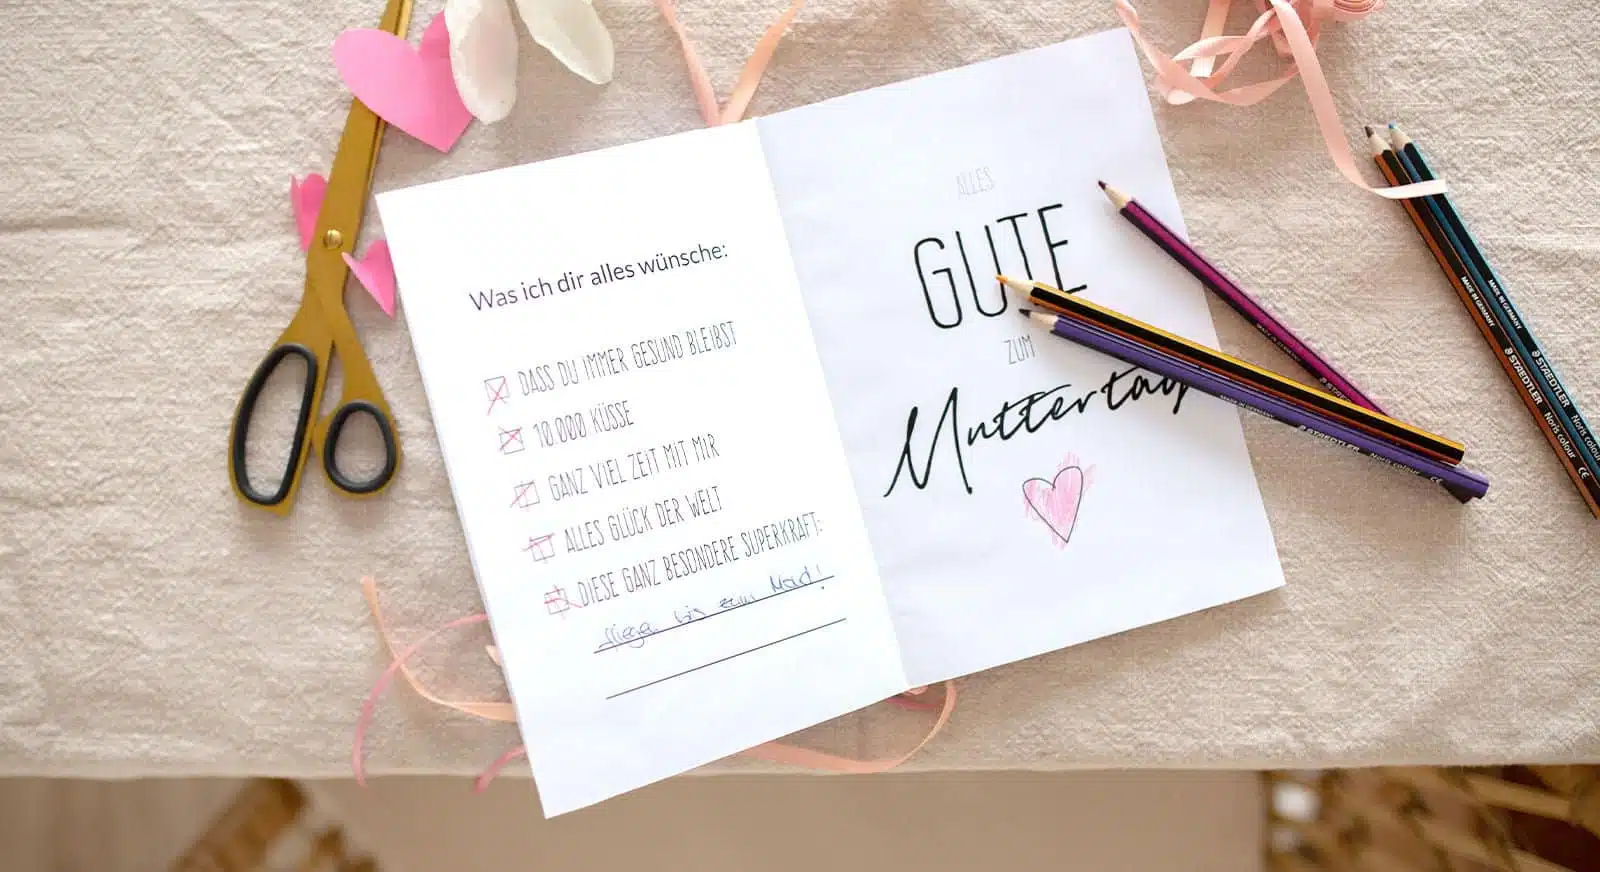 Was ich dir alles wünsche:
DASS DU IMMER GESUND BLEIBST
10.000 KÜSSE
GANZ VIEL ZEIT MIT MIR
ALLES GLÜCK DER WELT
DIESE GANZ BESONDERE SUPERKRAFT:
fliegen bis zum Mond!
ALLES
GUTE
ZUM
Muttertag
MADE IN GERMANY
STAEDTLER Noris colour
MADE IN GERMANY
MADE IN GERMANY STAEDTLER Noris colour CE
MADE IN GERMANY STAEDTLER Noris colour